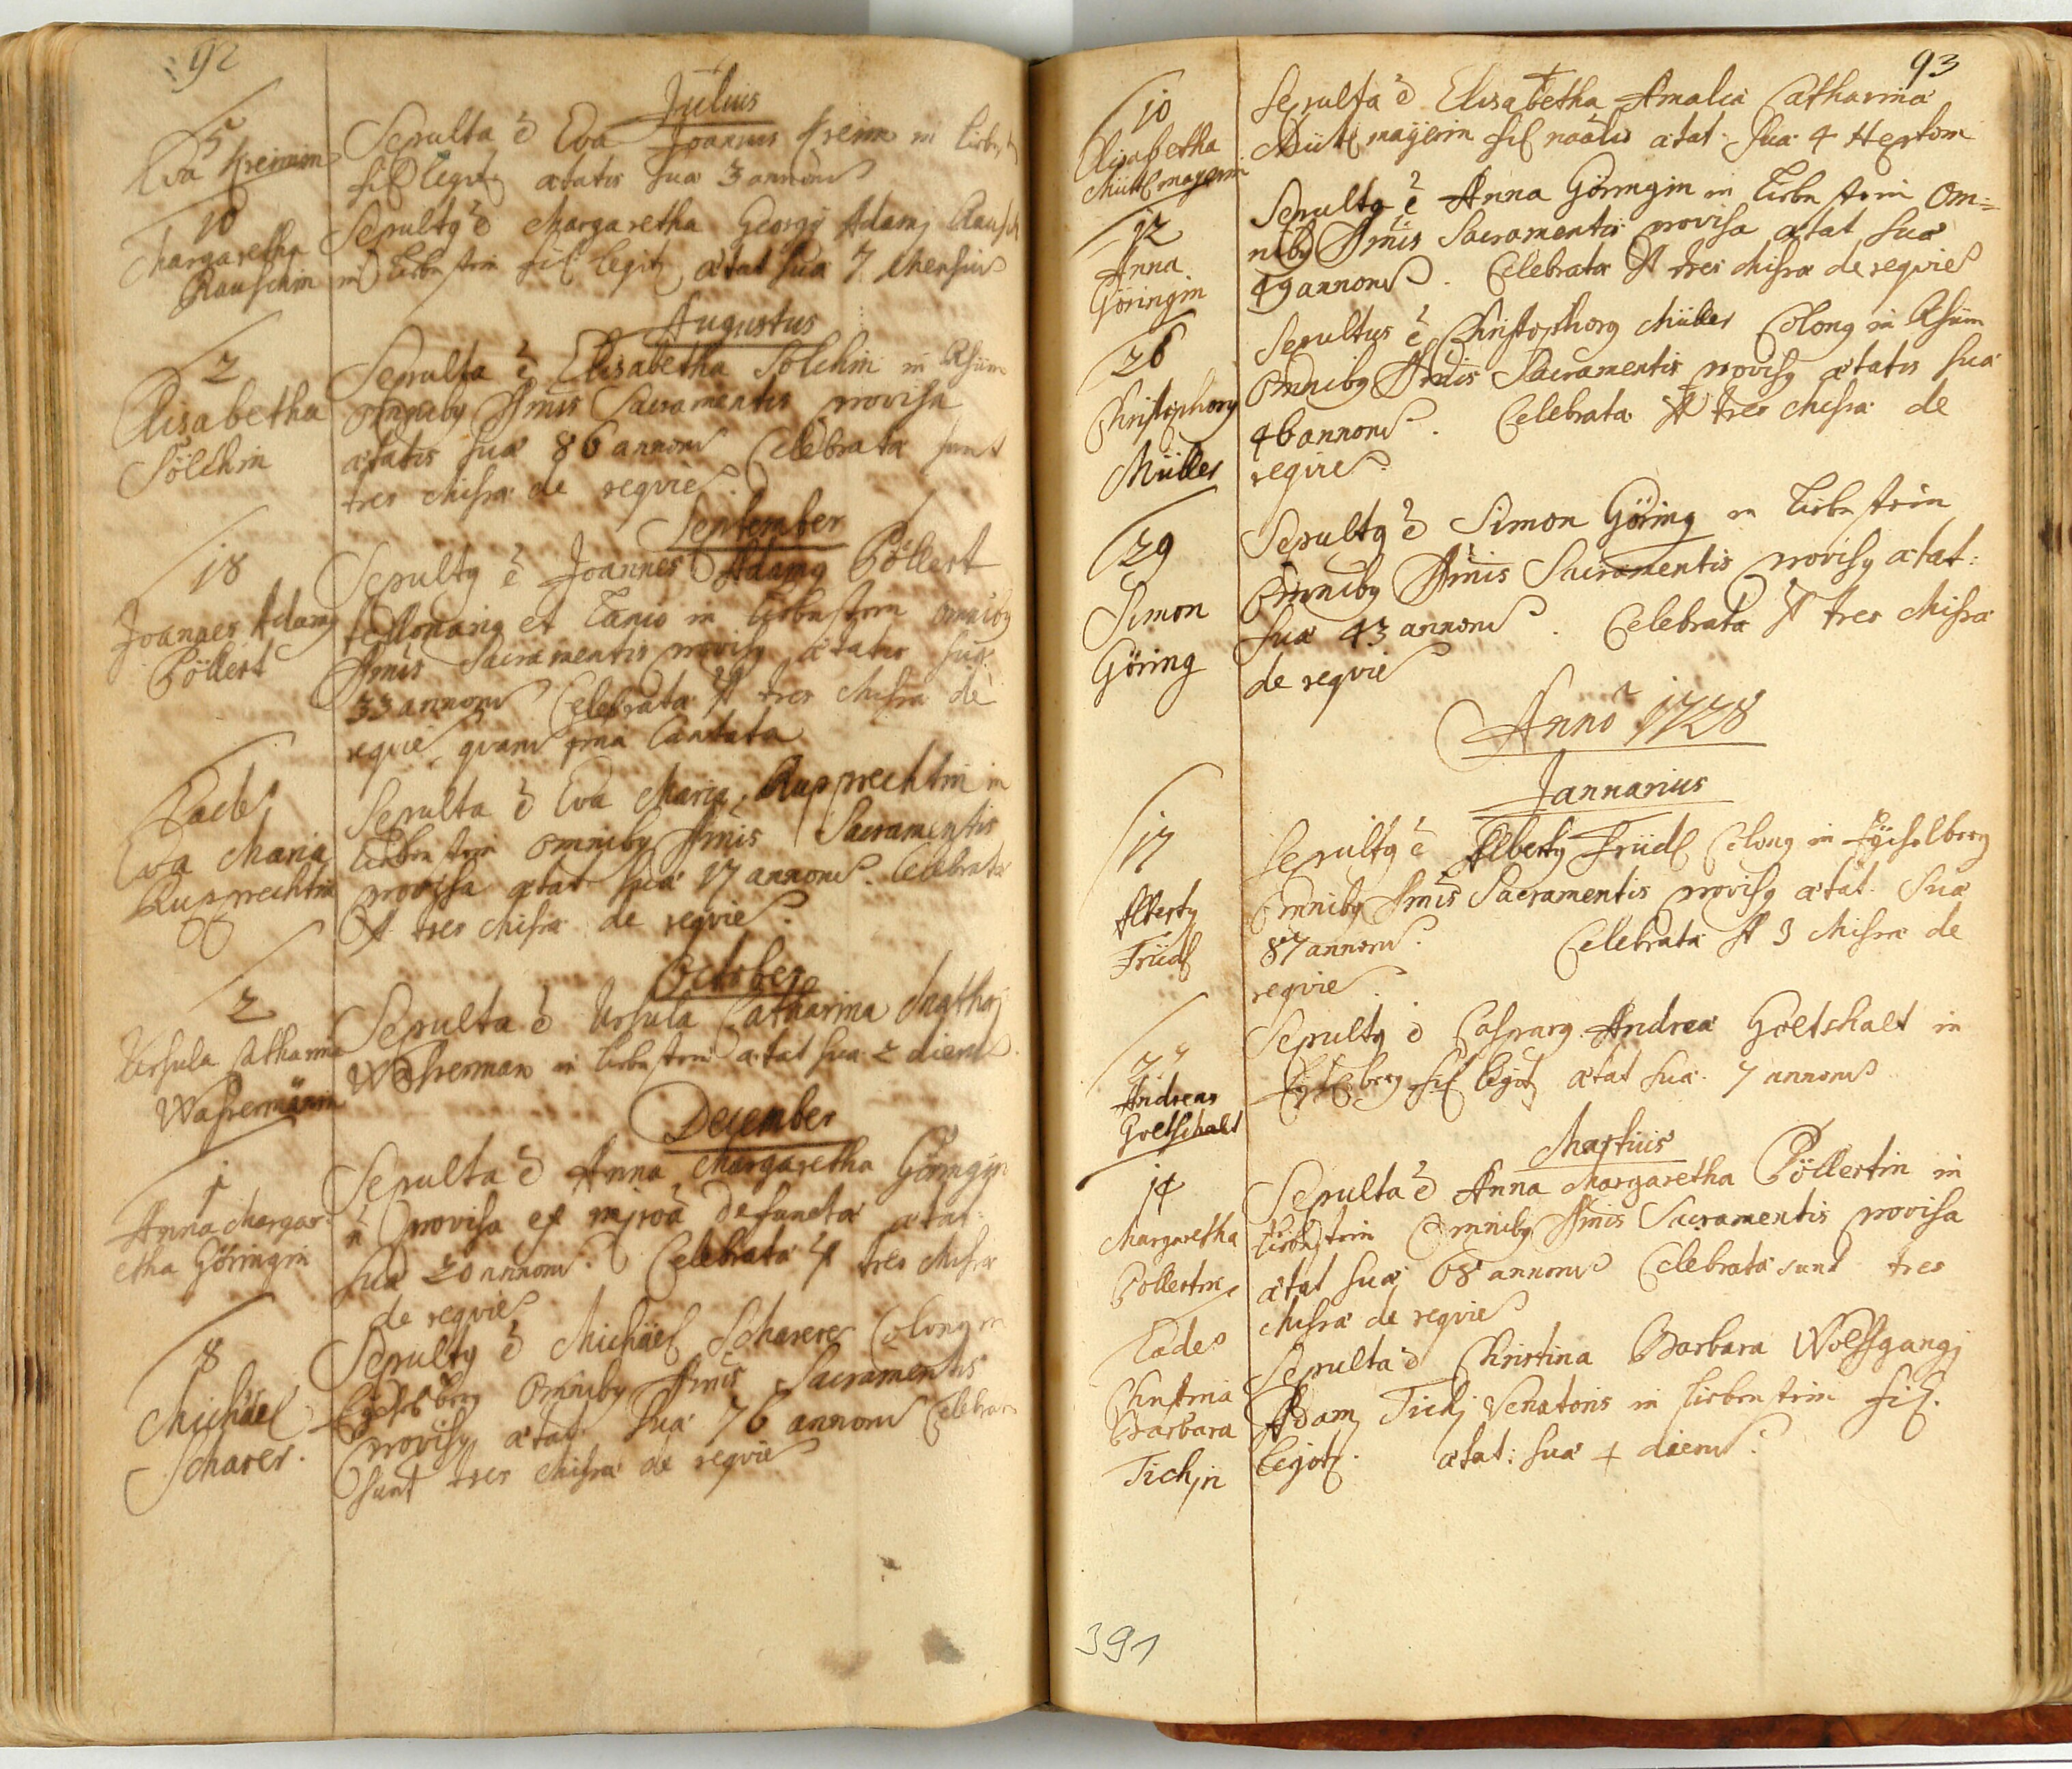 92
Julius
5
Eva Kreinin
Sepulta ē Eva Joannis Krein in Liebenst
fil legit. ætatis suæ 3 annorū
10
Margaretha
Rauschin
Sepultꝰ ē Margaretha Georgÿ Adamj Rausch
in Liebenstein fil legit. ætat suæ 7 Mensiū
Augustus
2
Elisabetha
Sölchin
Sepulta ē Elisabetha Sölchin in
omnibꝰ Armis Sacramentis provisa
ætatis suæ 86 annorū Celebratæ sunt
tres Missæ de requie.
September
18
Joannes Adamꝰ
Pöllert
Sepultꝰ ē Joannes Adamꝰ Pöllert
et Lanio in Liebenstein omnibꝰ
Armis Sacramentis provisꝰ ætatis suæ
33 annorū Celebratæ st tres Missæ de
requie, quarū una Cantata
Eadē
Eva Maria
Rupprechtin
Sepulta ē Eva Maria Rupprechtin in
Liebenstein omnibꝰ Armis Sacramentis
provisa ætat suæ 17 annorū. Celebratæ
st tres Missæ de requie.
October
2
Ursula Catharina
Wassermänin
Sepulta ē Ursula Catharina Mathæj
Wasserman in Liebenstein ætat suæ 2 dierū
December
1
Anna Margar-
etha Göringin
Sepulta ē Anna Margaretha Göringin
ñ provisa ex improviso defuncta ætat:
suæ 20 annorū. Celebratæ st tres Missæ
de requie
8
Michäel
Scharer.
Sepultꝰ ē Michäel Scharerer Colonꝰ in
omnibꝰ Armis Sacramentis
provisꝰ ætat suæ 76 annorū Celebratæ
sunt tres Missæ de requie
93
10
Elisabetha
Mütlmayerin
Sepulta ē Elisabetha Amalia Catharina
Mütlmayerin fil ætat: suæ 4 Heptom
12
Anna
Göringin
Sepulta ē Anna Göringin in Liebenstein Om=
nibꝰ Armis Sacramentis provisa ætat suæ
49 annorū. Celebratæ st tres Missæ de requie
26
Christophorꝰ
Müller
Sepultus ē Christophorꝰ Müller Colonꝰ in
Omnibꝰ Armis Sacramentis provisꝰ ætatis suæ
46 annorū. Celebratæ st tres Missæ de
requie.
29
Simon
Göring
Sepultꝰ ē Simon Göring in Liebenstein
Omnibꝰ Armis Sacramentis provisꝰ ætat:
suæ 43 annorū. Celebratæ st tres Missæ
de requie
Anno 1728
Januarius
17
Albertꝰ
Früdl
Sepultꝰ ē Albertꝰ Früdl Colonꝰ in
Omnibꝰ Armis Sacramentis provisꝰ ætat. suæ
87 annorū. Celebratæ st 3 Missæ de
requie.
Andreas
Goltschalt
Sepultꝰ ē Casparꝰ Andreæ Goltshalt in
fil legit. ætat suæ. 7 annorū
Martius
14
Margaretha
Pöllertin
Sepulta ē Anna Margaretha Pöllertin in
Liebenstein Omnibꝰ Armis Sacramentis provisa
ætat suæ 68 annorū Celebratæ sunt tres
Missæ de requie
Eadē
Christina
Barbara
Tichjn
Sepulta ē Christina Barbara Wolffgangj
Adamj Tichj Senatoris in Liebenstein fil.
legit. ætat: suæ 4 dierū.
391